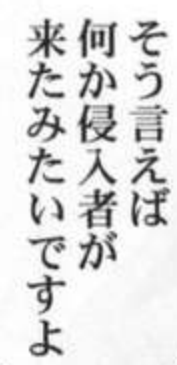 そう言えば
何か侵入者が
来たみたいですよ